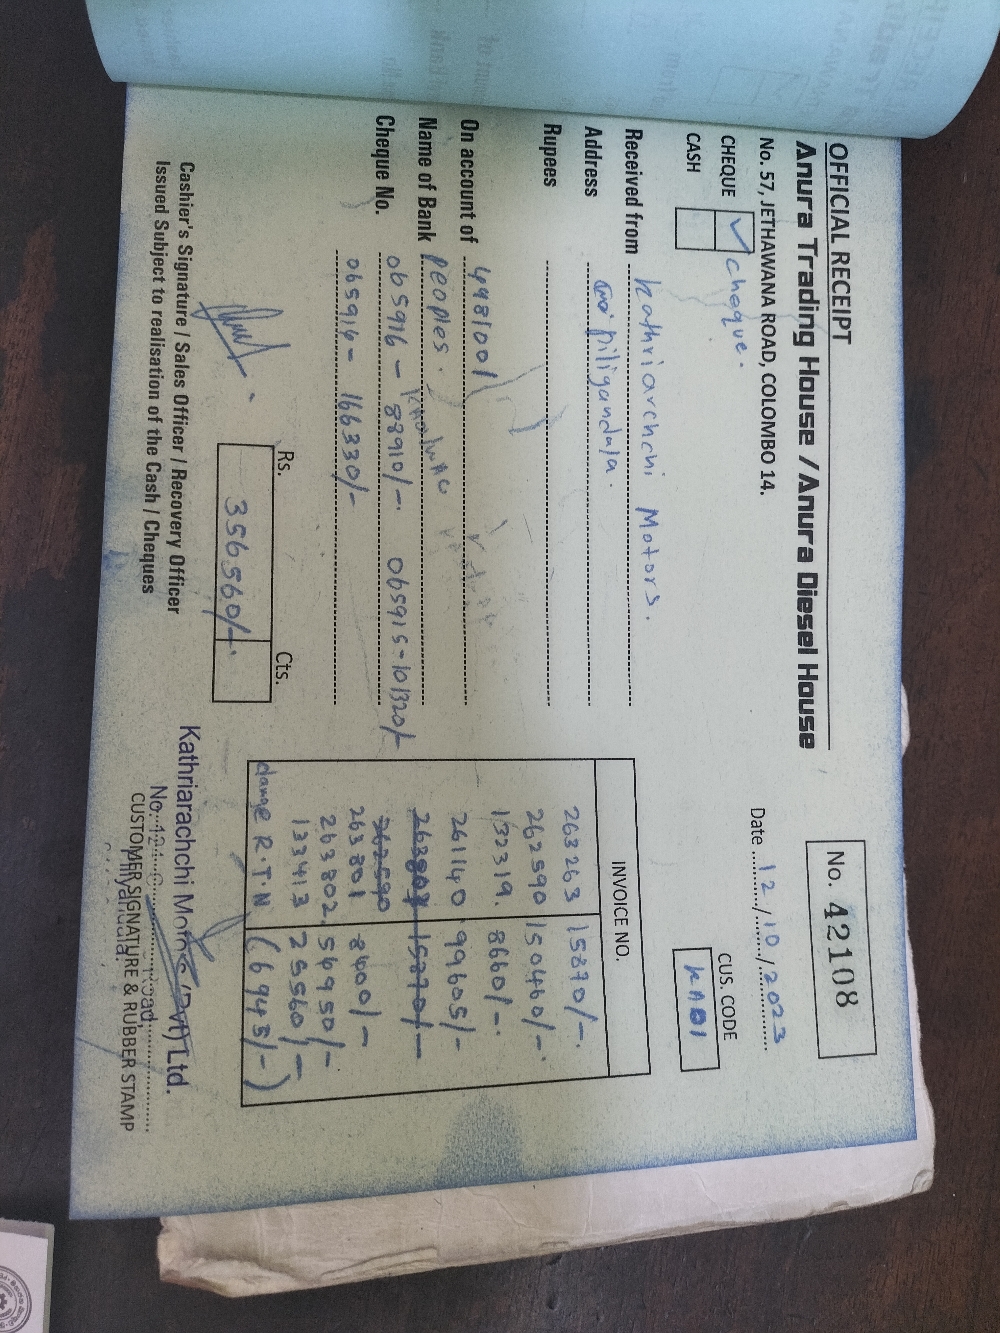 OFFICIAL RECEIPT
No. 42108
Anura Trading House / Anura Diesel House
No. 57, JETHAWANA ROAD, COLOMBO 14.
Date 12/10/2023
CHEQUE ✓ cheque.
CASH
CUS. CODE
KA01
Received from Kathriarchchi Motors.
Address piligandala.
Rupees
On account of 4981001
Name of Bank peoples.
Cheque No. 065916 - 88910/- 065915 - 101320/-
065914 - 166330/-
INVOICE NO.
263263 15870/-
262590 150460/-
132319. 8660/-
261140 99605/-
263801 8400/-
263802 54950/-
133413 25560/-
R.T.N (6945/-)
Rs. Cts.
356560/-
Cashier's Signature / Sales Officer / Recovery Officer
Issued Subject to realisation of the Cash / Cheques
Kathriarachchi Motors (Pvt) Ltd.
CUSTOMER SIGNATURE & RUBBER STAMP